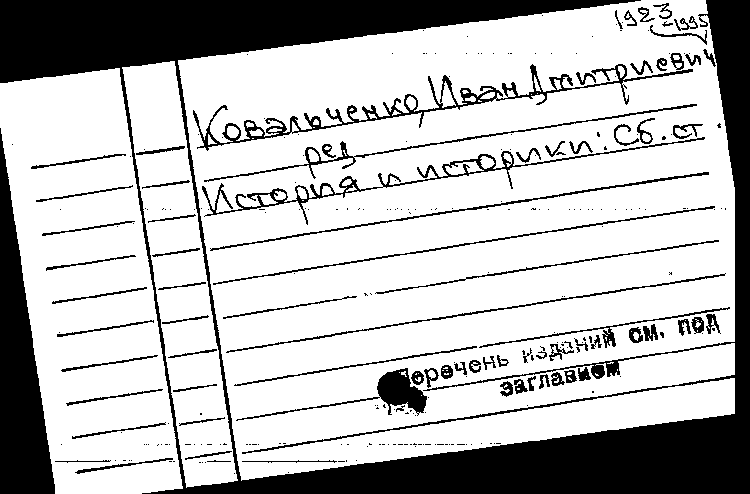 1923
-1995
Ковальченко, Иван Дмитриевич
ред.
История и историки: Сб. ст.
Перечень изданий см. под
заглавием